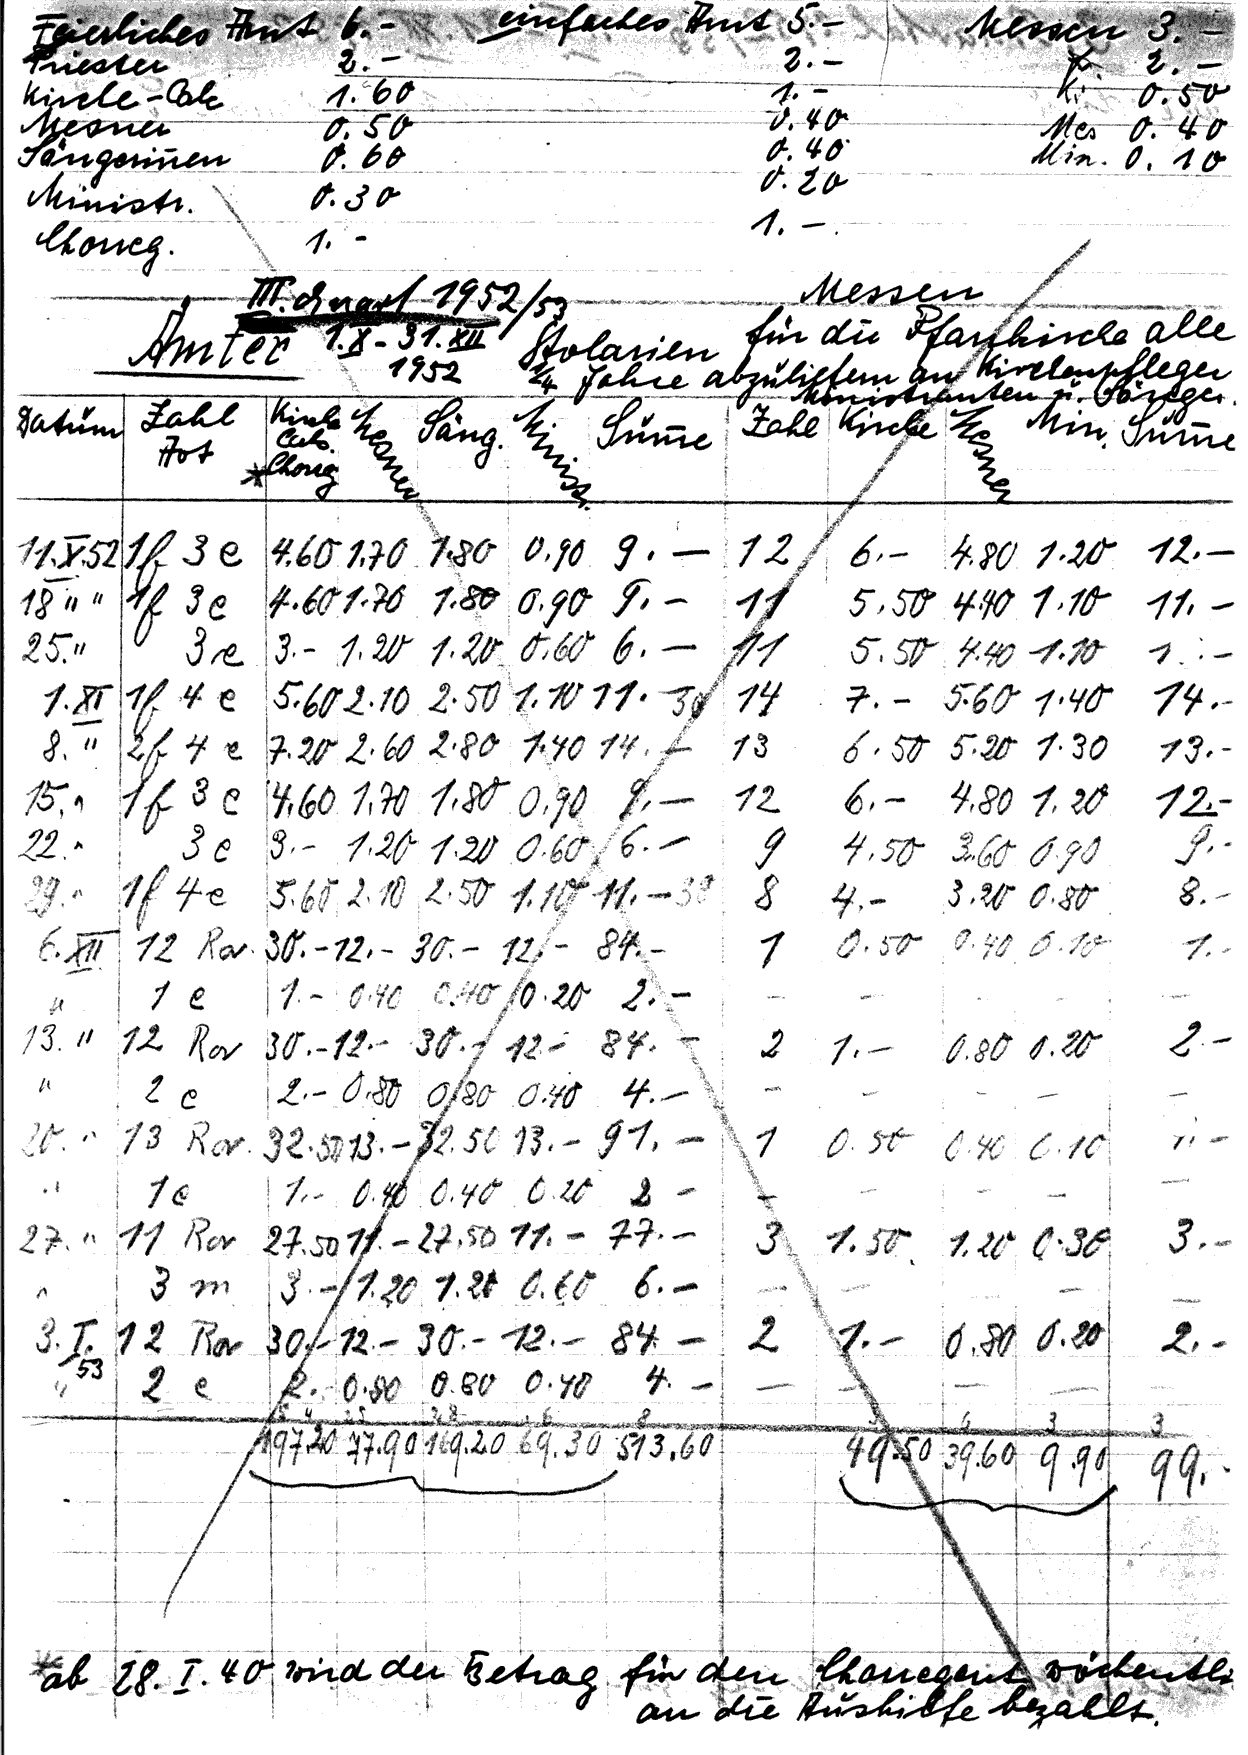 Feierliches Amt 6.- einfaches Amt 5.- Messen 3.-
Priester 2.- 2.- 2.-
Kirche-Calc 1.60 1.- Ki. 0.50
Mesner 0.50 0.40 Mes 0.40
Sängerinen 0.60 0.40 Min. 0.10
Ministr. 0.30 0.20
Chorreg. 1.- 1.-
III. Quart 1952/53 Messen
Ämter 1.X - 31.XII Stolarien für die Pfarrkirche alle
1952 1/4 Jahre abzuliefern an Kirchenpfleger
Ministranten u.
Datum Zahl Art Kirche Calc. * Chorreg Mesner Säng. Minist. Sume Zahl Kirche Mesner Min. Sume
11.X.52 1f 3 e 4.60 1.70 1.80 0.90 9.- 12 6.- 4.80 1.20 12.-
18 " " 1f 3 e 4.60 1.70 1.80 0.90 9.- 11 5.50 4.40 1.10 11.-
25. " 3 e 3.- 1.20 1.20 0.60 6.- 11 5.50 4.40 1.10
1.XI 1f 4 e 5.60 2.10 2.50 1.10 11.30 14 7.- 5.60 1.40 14.-
8. " 2f 4 e 7.20 2.60 2.80 1.40 14.- 13 6.50 5.20 1.30 13.-
15. " 1f 3 e 4.60 1.70 1.80 0.90 9.- 12 6.- 4.80 1.20 12.-
22. " 3 e 3.- 1.20 1.20 0.60 6.- 9 4.50 3.60 0.90 9.-
29. " 1f 4 e 5.60 2.10 2.50 1.10 11.-30 8 4.- 3.20 0.80 8.-
6.XII 12 Ror. 30.- 12.- 30.- 12.- 84.- 1 0.50 0.40 0.10 1.-
" 1 e 1.- 0.40 0.40 0.20 2.- - - - - -
13. " 12 Ror 30.- 12.- 30.- 12.- 84.- 2 1.- 0.80 0.20 2.-
" 2 e 2.- 0.80 0.80 0.40 4.- - - - - -
20. " 13 Ror. 32.50 13.- 32.50 13.- 91.- 1 0.50 0.40 0.10 1.-
" 1 e 1.- 0.40 0.40 0.20 2 - - - - - -
27. " 11 Ror 27.50 11.- 27.50 11.- 77.- 3 1.50 1.20 0.30 3.-
" 3 m 3.- 1.20 1.20 0.60 6.- - - - - -
3.I.53 12 Ror 30.- 12.- 30.- 12.- 84.- 2 1.- 0.80 0.20 2.-
" 2 e 2.- 0.80 0.80 0.40 4.- - - - - -
197.20 77.90 169.20 69.30 513.60 49.50 39.60 9.90 99.-
* ab 28.I.40 wird der Betrag für den Chorregent wöchentli
an die Aushilfe bezahlt.